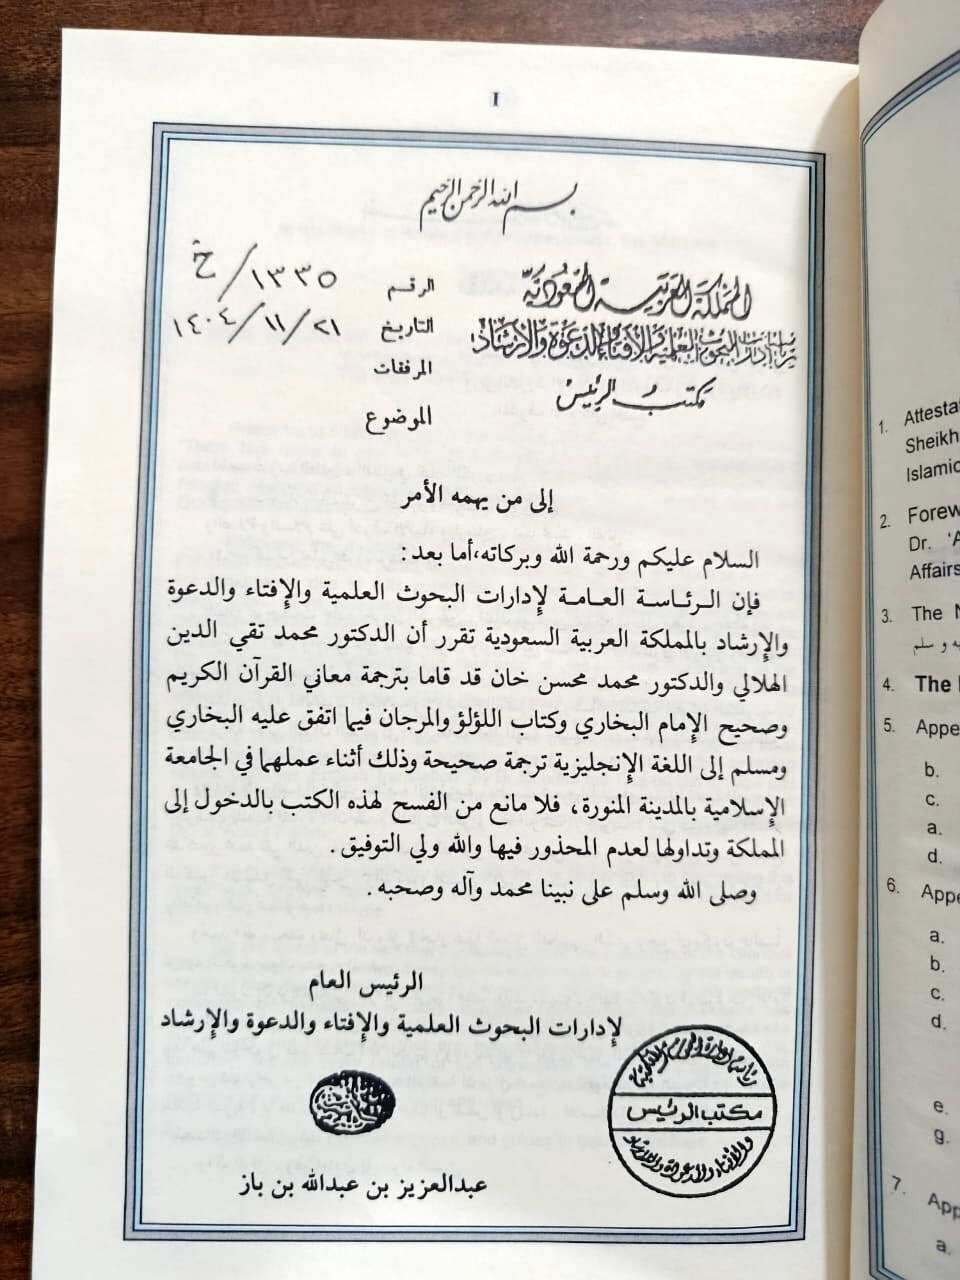 I
بسم الله الرحمن الرحيم
المملكة العربية السعودية
رئاسة إدارات البحوث العلمية والإفتاء والدعوة والإرشاد
مكتب الرئيس
الرقم ١٣٣٥/خ
التاريخ ١٤٠٤/١١/٢١
المرفقات
الموضوع
إلى من يهمه الأمر
السلام عليكم ورحمة الله وبركاته،أما بعد:
فإن الرئاسة العامة لإدارات البحوث العلمية والإفتاء والدعوة
والإرشاد بالمملكة العربية السعودية تقرر أن الدكتور محمد تقي الدين
الهلالي والدكتور محمد محسن خان قد قاما بترجمة معاني القرآن الكريم
وصحيح الإمام البخاري وكتاب اللؤلؤ والمرجان فيما اتفق عليه البخاري
ومسلم إلى اللغة الإنجليزية ترجمة صحيحة وذلك أثناء عملهما في الجامعة
الإسلامية بالمدينة المنورة، فلا مانع من الفسح لهذه الكتب بالدخول إلى
المملكة وتداولها لعدم المحذور فيها والله ولي التوفيق.
وصلى الله وسلم على نبينا محمد وآله وصحبه.
الرئيس العام
لإدارات البحوث العلمية والإفتاء والدعوة والإرشاد
مكتب الرئيس
والإفتاء والدعوة والإرشاد
عبدالعزيز بن عبدالله بن باز
1. Attestat
Sheikh
Islamic
2. Forew
Dr. 'A
Affairs
3. The N
يه و سلم
4. The
5. Appe
b.
c.
a.
d.
6. Appe
a.
b.
c.
d.
e.
g.
7. App
a.